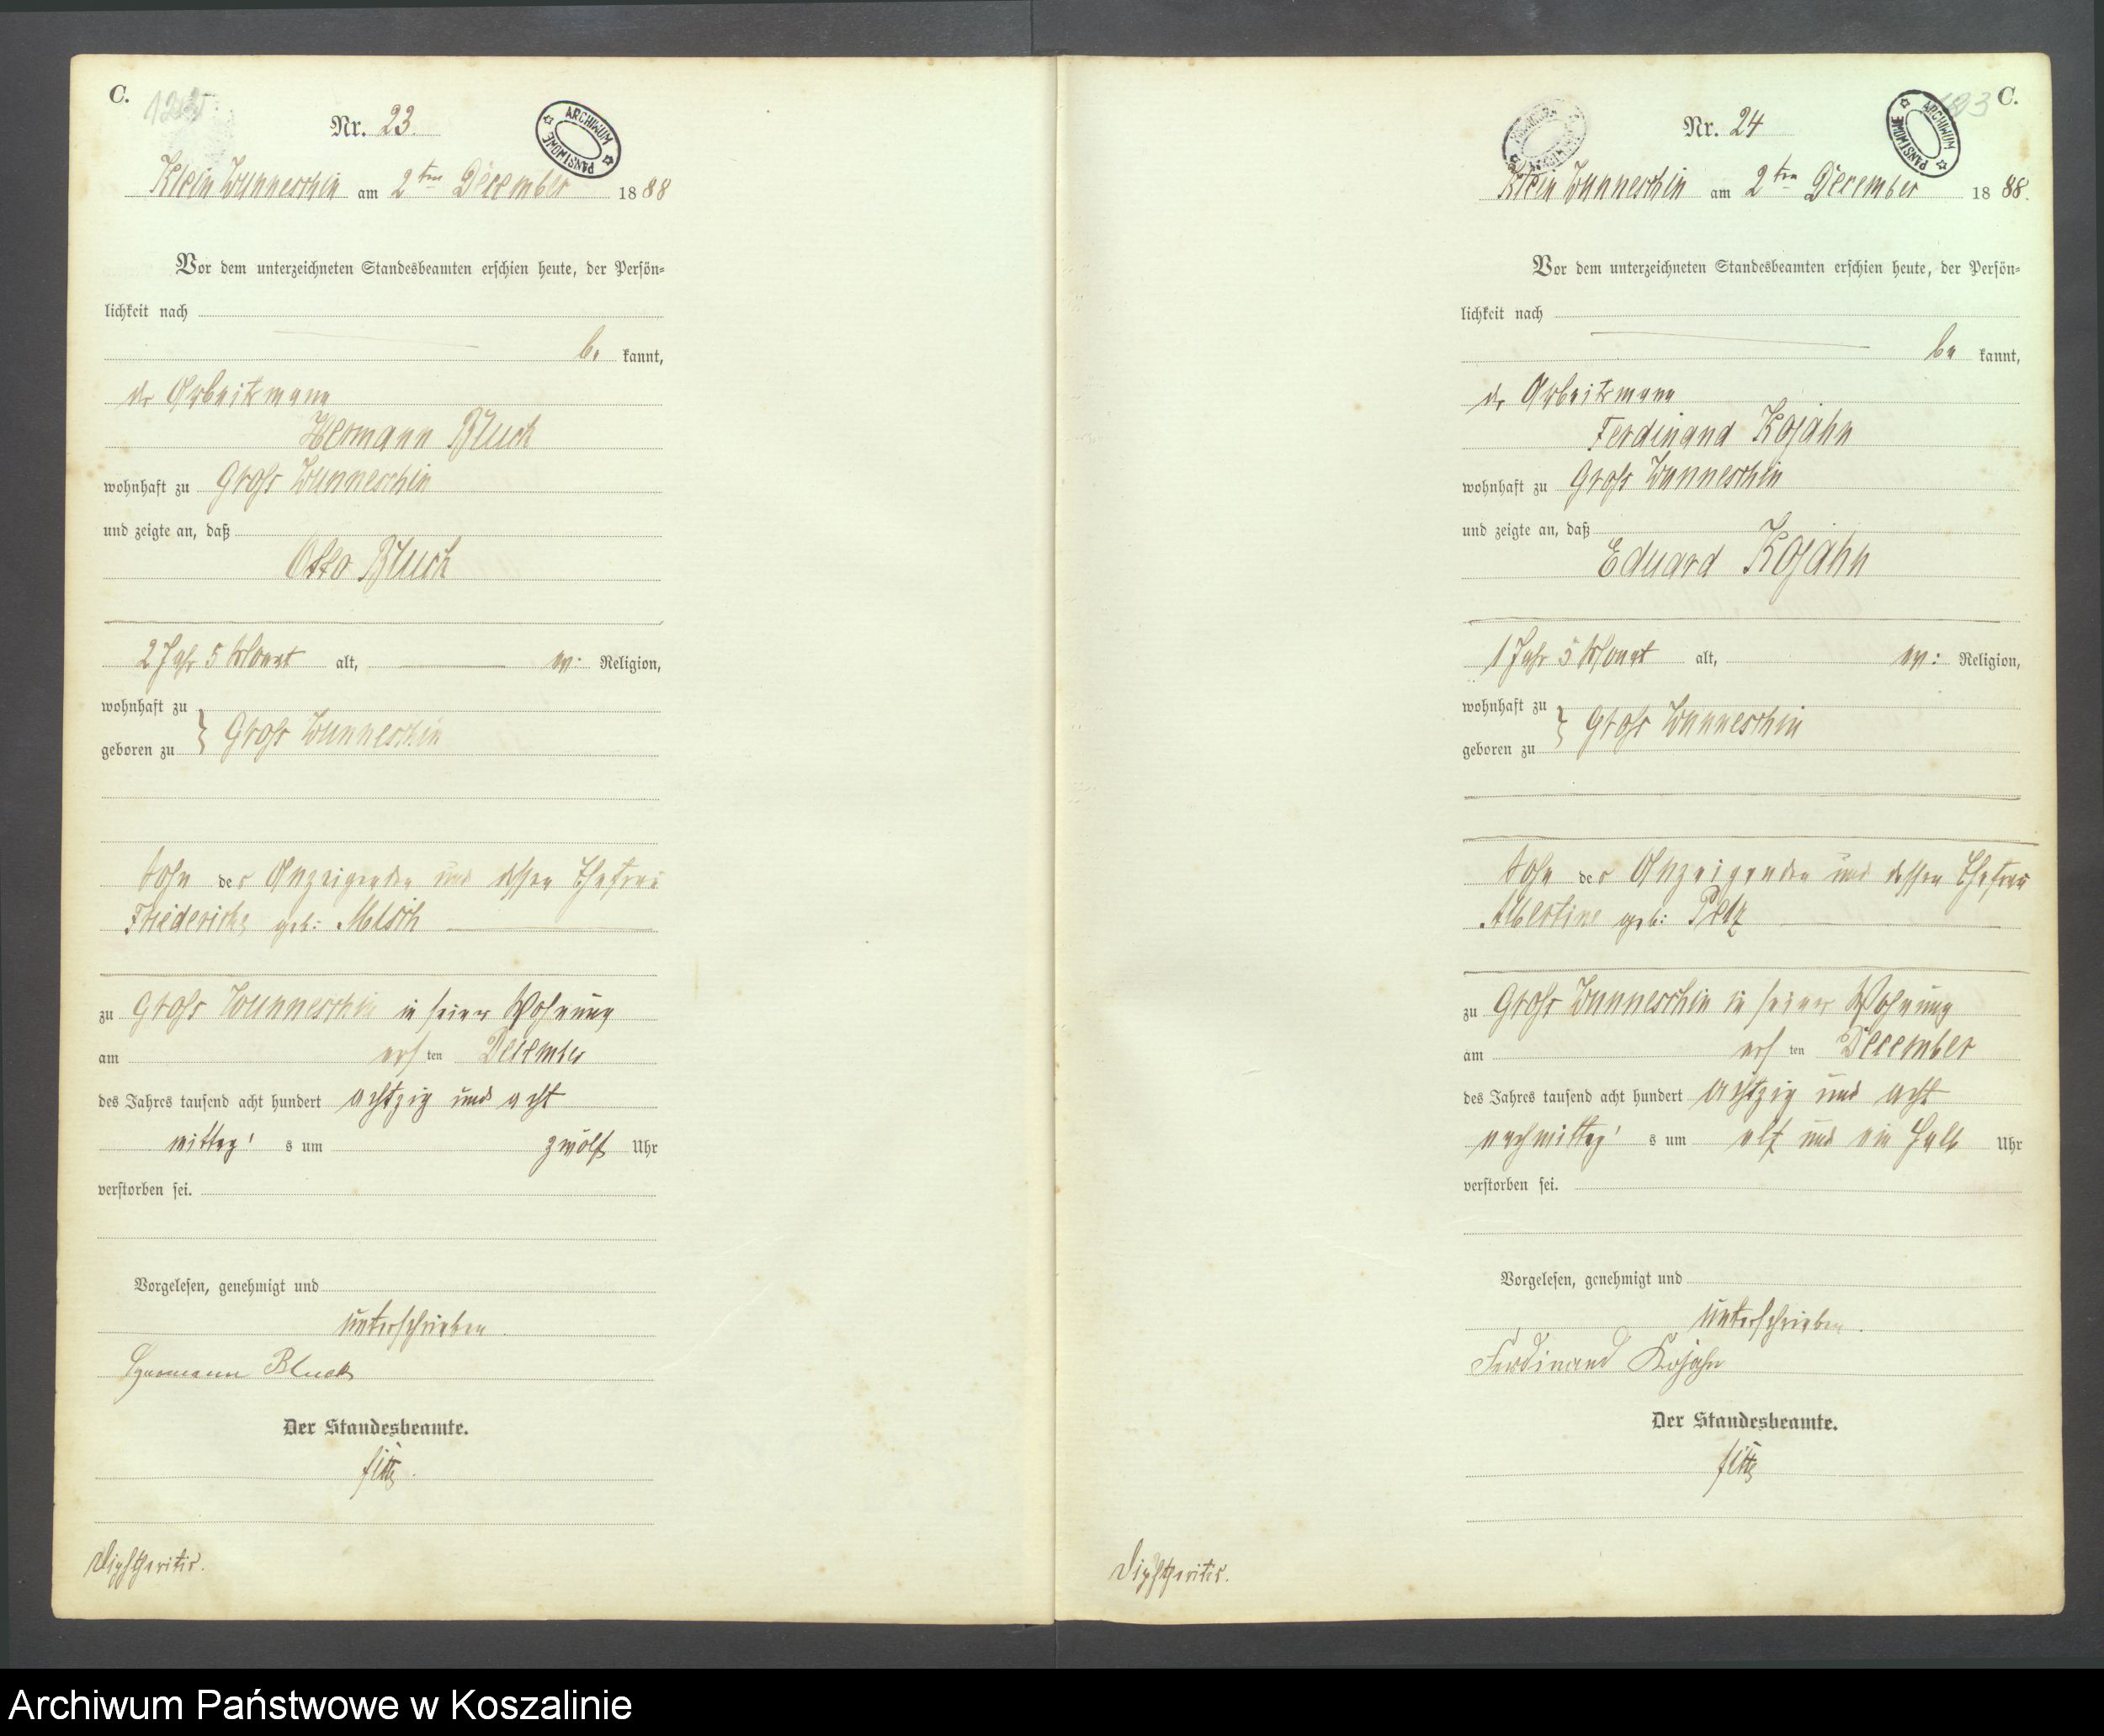 C.
Nr. 23.
ARCHIWUM PAŃSTWOWE
Klein Wunneschin am 2ten December 1888
Vor dem unterzeichneten Standesbeamten erschien heute, der Persön=
lichkeit nach
be kannt,
der Arbeitsmann
Hermann Bluck
wohnhaft zu Groß Wunneschin
und zeigte an, daß
Otto Bluck
2 Jahr 5 Monat alt, ev: Religion,
wohnhaft zu
geboren zu } Groß Wunneschin
Sohn des Anzeigenden und dessen Ehefrau
Friederike geb:
zu Groß Wunneschin in seiner Wohnung
am ersten December
des Jahres tausend acht hundert achtzig und acht
mittag's um zwölf Uhr
verstorben sei.
Vorgelesen, genehmigt und
unterschrieben.
Hermann Bluck
Der Standesbeamte.
Diphtheritis.
C.
Nr. 24
ARCHIWUM PAŃSTWOWE
Klein Wunneschin am 2ten December 1888.
Vor dem unterzeichneten Standesbeamten erschien heute, der Persön=
lichkeit nach
be kannt,
der Arbeitsmann
Ferdinand Kojahn
wohnhaft zu Groß Wunneschin
und zeigte an, daß
Eduard Kojahn
1 Jahr 5 Monat alt, ev: Religion,
wohnhaft zu
geboren zu } Groß Wunneschin
Sohn des Anzeigenden und dessen Ehefrau
Albertine geb: Petz
zu Groß Wunneschin in seiner Wohnung
am ersten December
des Jahres tausend acht hundert achtzig und acht
nachmittag's um elf und ein halb Uhr
verstorben sei.
Vorgelesen, genehmigt und
unterschrieben.
Ferdinand Kojahn
Der Standesbeamte.
Diphtheritis.
Archiwum Państwowe w Koszalinie